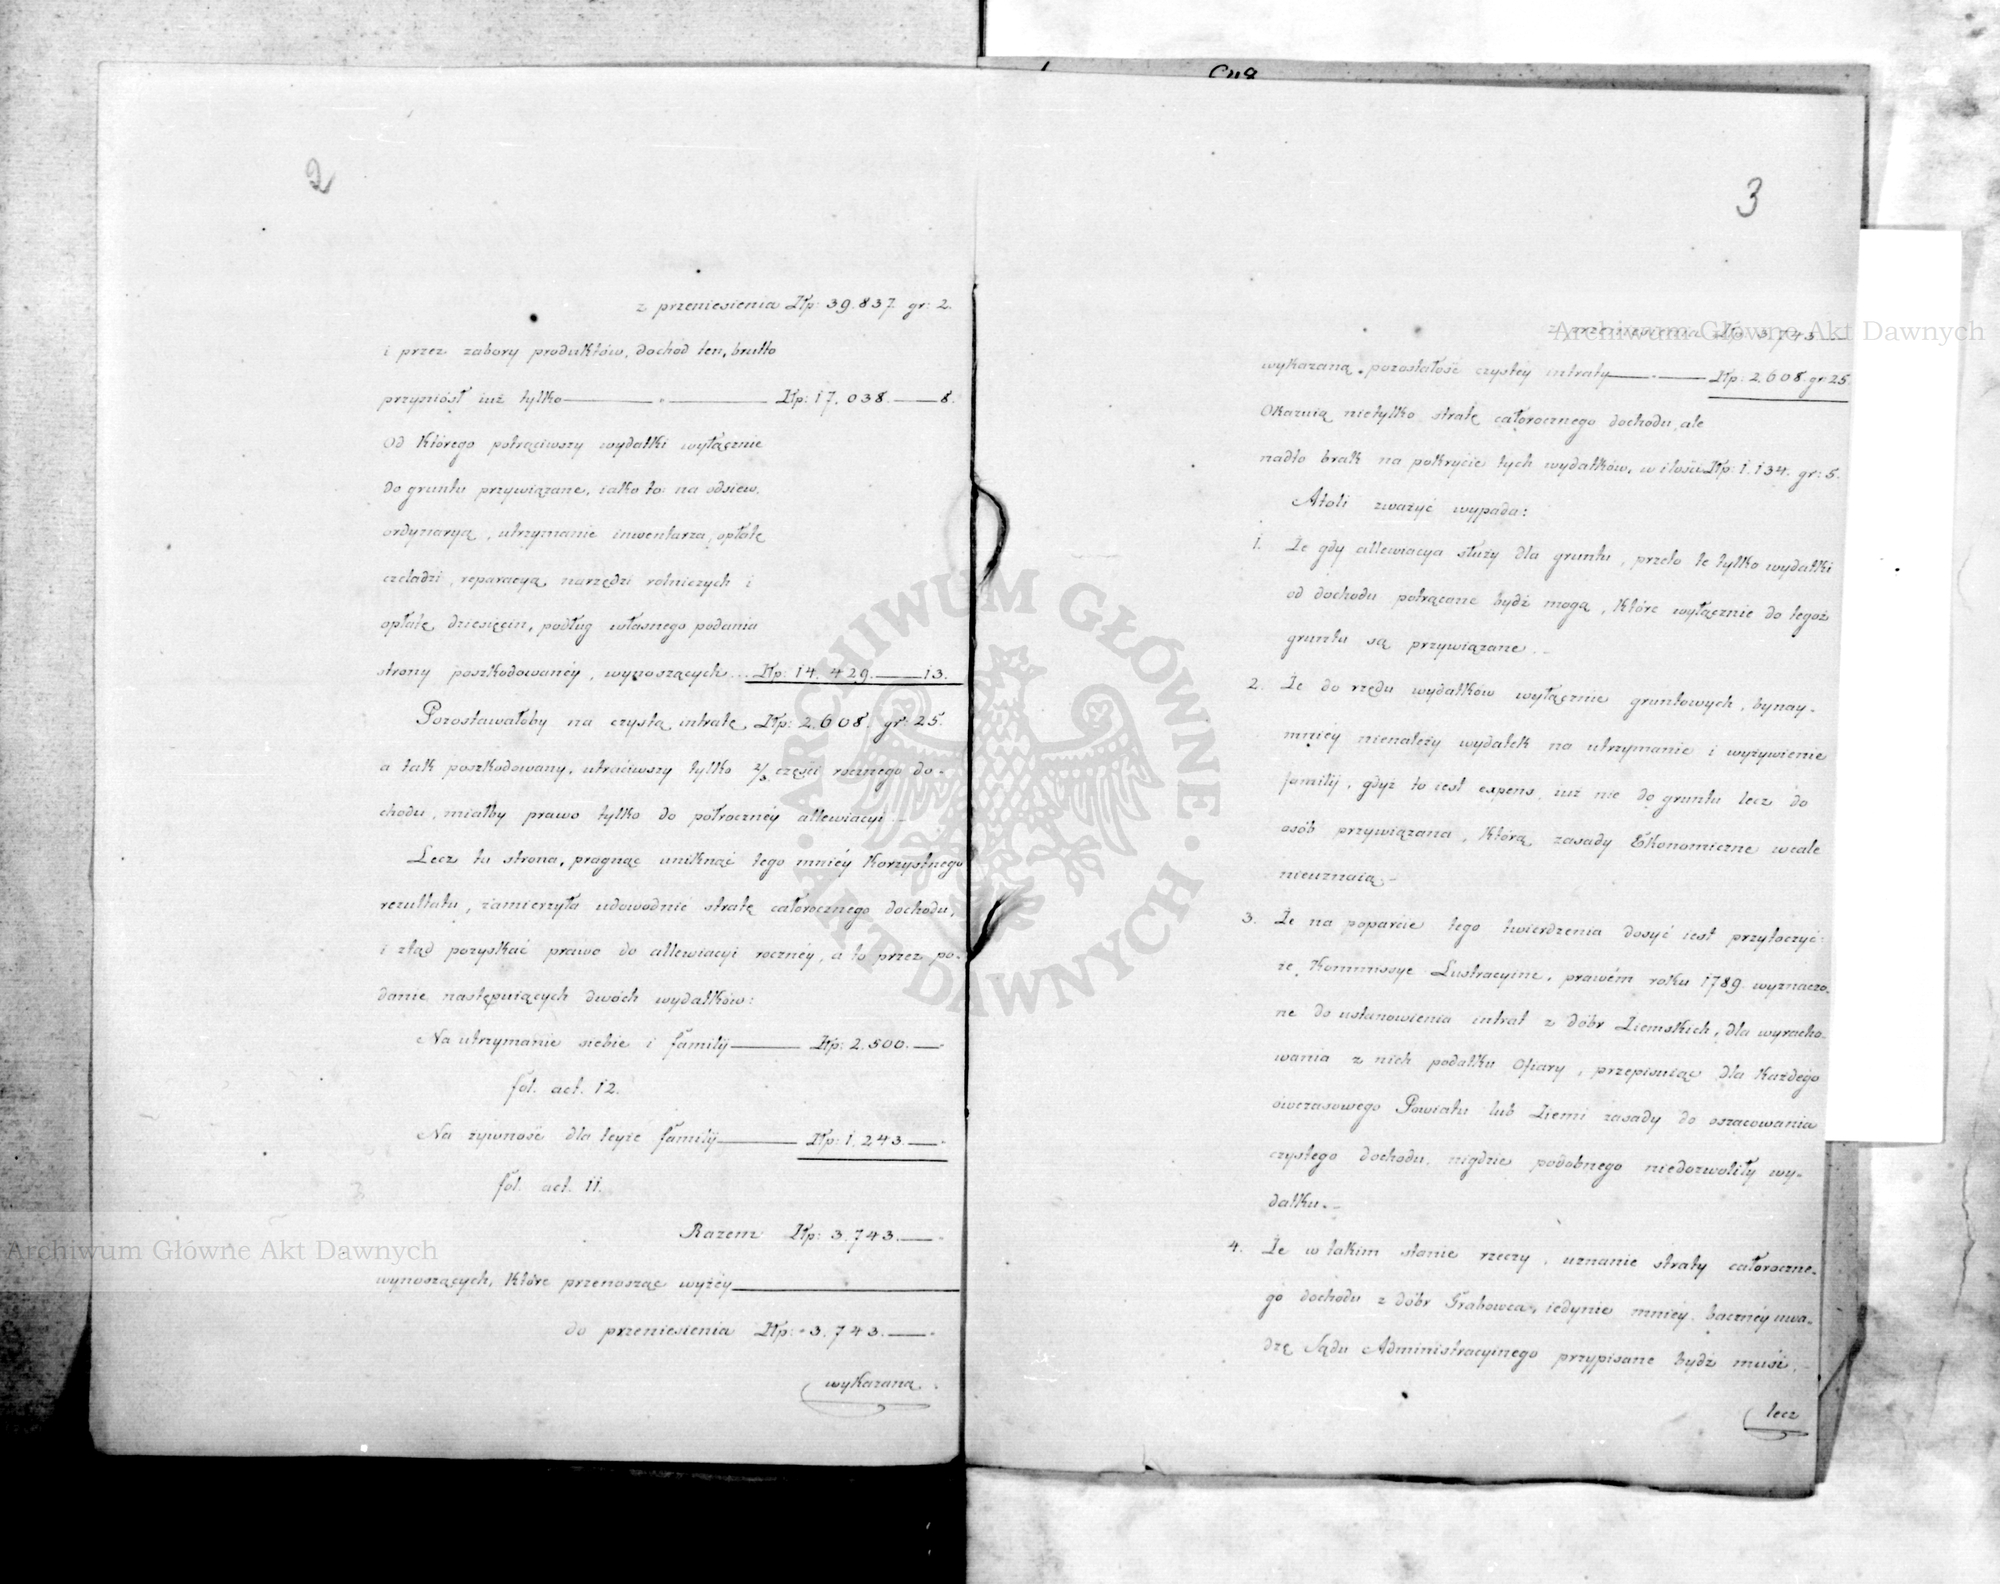 2
z przeniesienia Złp: 39.837. gr: 2.
i przez zabory produktów, dochod ten, brutto
przyniósł iuż tylko — „ — Złp: 17,038. — 8.
Od którego potrąciwszy wydatki wyłącznie
do gruntu przywiązane, iako to: na odsiew,
ordynaryą, utrzymanie inwentarza, opłatę
czeladzi, reparacyą narzędzi rolniczych i
opłatę dziesięcin, podług własnego podania
strony poszkodowanéy, wynoszących... Złp: 14.429. — 13.
Pozostawałoby na czystą intratę, Złp: 2.608. gr: 25.
a tak poszkodowany, utraciwszy tylko 2/3 części rocznego do-
chodu, miałby prawo tylko do półrocznéy allewiacyi.—
Lecz tu strona, pragnąc uniknąć tego mniéy korzystnego
rezultatu, zamierzyła udowodnić stratę całorocznego dochodu,
i ztąd pozyskać prawo do allewiacyi rocznéy, a to przez po-
danie następuiących dwóch wydatków:
Na utrzymanie siebie i familij — Złp: 2.500. —
fol. act. 12.
Na żywność dla teyże familij — Złp: 1,243. —
fol. act. 11.
Razem Złp: 3.743. —
wynoszących, które przenosząc wyżéy —
do przeniesienia Złp: 3.743. —
wykazaną.
3
z przeniesienia Złp: 3.743. —
wykazaną pozostałość czystéy intraty — Złp: 2.608. gr 25.
Okazuią nietylko stratę całorocznego dochodu, ale
nadto brak na pokrycie tych wydatków, w ilości Złp: 1.134. gr: 5.
Atoli zważyć wypada:
1. Że gdy allewiacya służy dla gruntu, przeto te tylko wydatki
od dochodu potrącane bydź mogą, które wyłącznie do tegoż
gruntu są przywiązane.—
2. Że do rzędu wydatków wyłącznie gruntowych, bynay-
mniéy nienależy wydatek na utrzymanie i wyżywienie
familij, gdyż to iest expens, iuż nie do gruntu lecz do
osób przywiązana, którą zasady Ekonomiczne wcale
nieuznaią.—
3. Że na poparcie tego twierdzenia dosyć iest przytoczyć:
że Kommissye Lustracyine, prawém roku 1789. wyznaczo-
ne do ustanowienia intrat z dóbr Ziemskich, dla wyracho-
wania z nich podatku Ofiary, przepisuiąc dla każdego
ówczasowego Powiatu lub Ziemi zasady do oszacowania
czystego dochodu, nigdzie podobnego niedozwoliły wy-
datku.—
4. Że w takim stanie rzeczy, uznanie straty całoroczne-
go dochodu z dóbr Grabowca, iedynie mniéy bacznéy uwa-
dze Sądu Administracyinego przypisane bydź musi.—
lecz
Archiwum Główne Akt Dawnych
Archiwum Główne Akt Dawnych
ARCHIWUM GŁÓWNE · AKT DAWNYCH ·